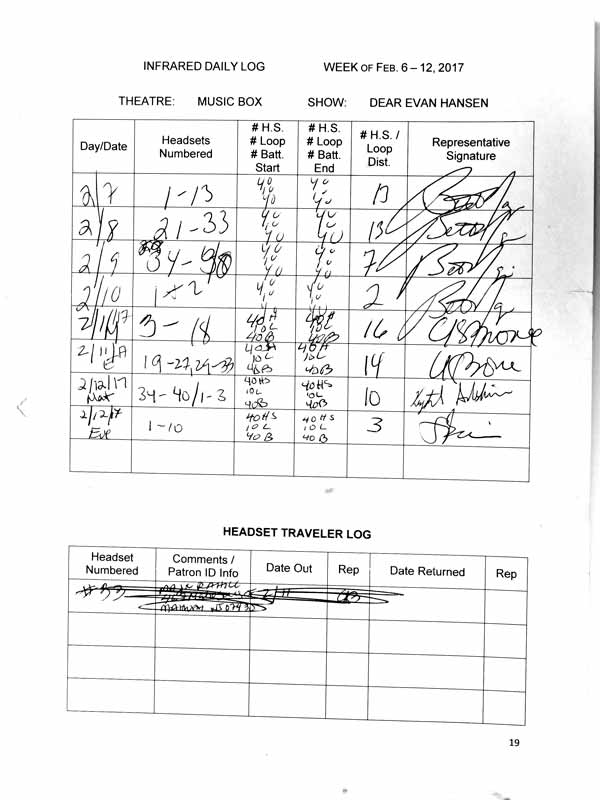 INFRARED DAILY LOG WEEK OF FEB. 6 – 12, 2017
THEATRE: MUSIC BOX SHOW: DEAR EVAN HANSEN
Day/Date Headsets Numbered # H.S. # Loop # Batt. Start # H.S. # Loop # Batt. End # H.S. / Loop Dist. Representative Signature
2/7 1-13 40 40 40 40 13
2/8 21-33 40 40 40 40 13
2/9 34-40 40 40 40 7
2/10 1 2 40 40 2
3-18 40H 10L 40B 10L 40B 16
2/11/17 E 19-27, 29-33 10L 40B 40B 14
2/12/17 Mat 34-40/1-3 40HS 10L 40B 40HS 10L 40B 10
2/12/17 Eve 1-10 40HS 10L 40B 40HS 10L 40B 3
HEADSET TRAVELER LOG
Headset Numbered Comments / Patron ID Info Date Out Rep Date Returned Rep
#33 2/11
19